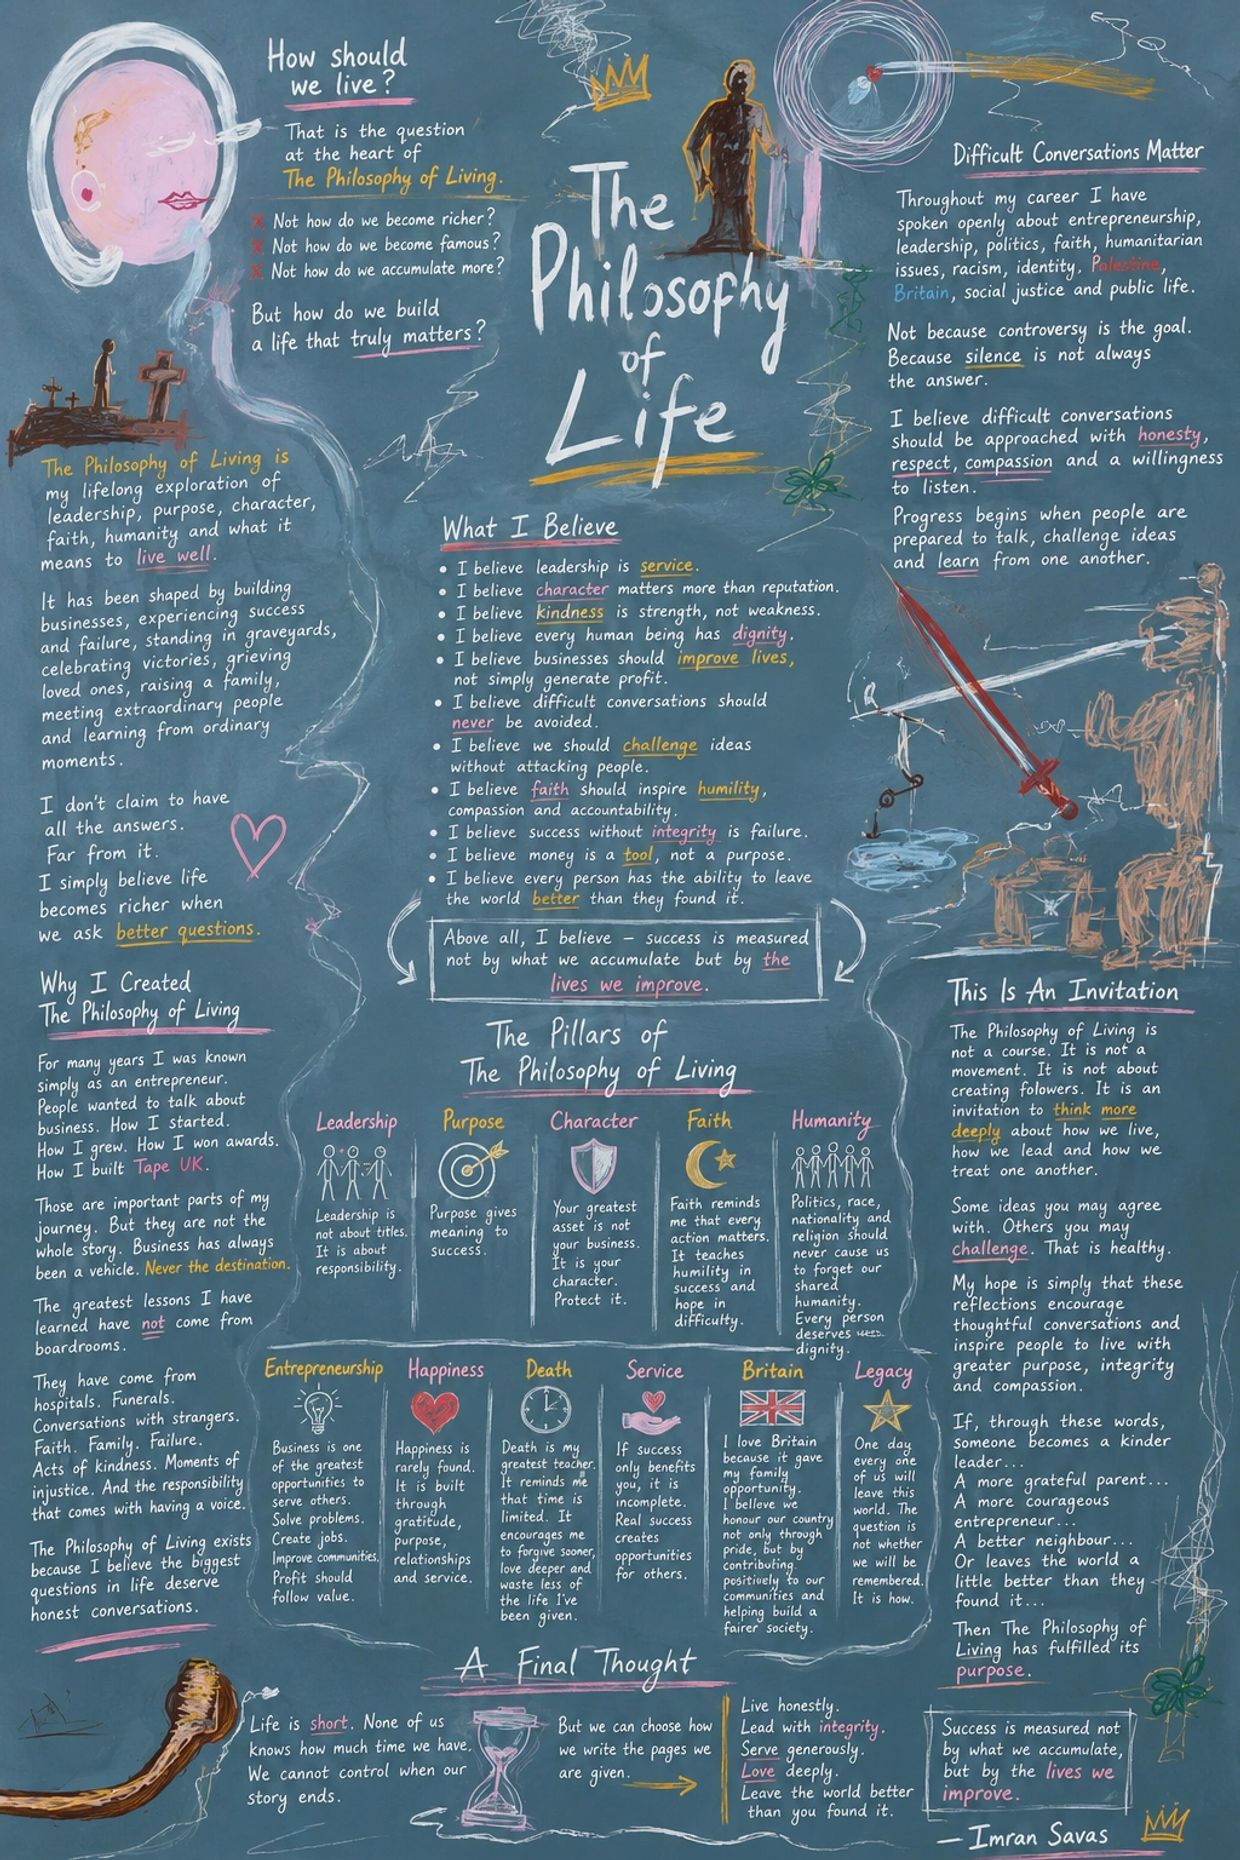 How should
we live?
That is the question
at the heart of
The Philosophy of Living.
Not how do we become richer?
Not how do we become famous?
Not how do we accumulate more?
But how do we build
a life that truly matters?
The Philosophy of Living is
my lifelong exploration of
leadership, purpose, character,
faith, humanity and what it
means to live well.
It has been shaped by building
businesses, experiencing success
and failure, standing in graveyards,
celebrating victories, grieving
loved ones, raising a family,
meeting extraordinary people
and learning from ordinary
moments.
I don't claim to have
all the answers.
Far from it.
I simply believe life
becomes richer when
we ask better questions.
Why I Created
The Philosophy of Living
For many years I was known
simply as an entrepreneur.
People wanted to talk about
business. How I started.
How I grew. How I won awards.
How I built Tape UK.
Those are important parts of my
journey. But they are not the
whole story. Business has always
been a vehicle. Never the destination.
The greatest lessons I have
learned have not come from
boardrooms.
They have come from
hospitals. Funerals.
Conversations with strangers.
Faith. Family. Failure.
Acts of kindness. Moments of
injustice. And the responsibility
that comes with having a voice.
The Philosophy of Living exists
because I believe the biggest
questions in life deserve
honest conversations.
The
Philosophy
of
Life
What I Believe
• I believe leadership is service.
• I believe character matters more than reputation.
• I believe kindness is strength, not weakness.
• I believe every human being has dignity.
• I believe businesses should improve lives,
not simply generate profit.
• I believe difficult conversations should
never be avoided.
• I believe we should challenge ideas
without attacking people.
• I believe faith should inspire humility,
compassion and accountability.
• I believe success without integrity is failure.
• I believe money is a tool, not a purpose.
• I believe every person has the ability to leave
the world better than they found it.
Above all, I believe – success is measured
not by what we accumulate but by the
lives we improve.
The Pillars of
The Philosophy of Living
Leadership
Leadership is
not about titles.
It is about
responsibility.
Purpose
Purpose gives
meaning to
success.
Character
Your greatest
asset is not
your business.
It is your
character.
Protect it.
Faith
Faith reminds
me that every
action matters.
It teaches
humility in
success and
hope in
difficulty.
Humanity
Politics, race,
nationality and
religion should
never cause us
to forget our
shared
humanity.
Every person
deserves
dignity.
Entrepreneurship
Business is one
of the greatest
opportunities to
serve others.
Solve problems.
Create jobs.
Improve communities.
Profit should
follow value.
Happiness
Happiness is
rarely found.
It is built
through
gratitude,
purpose,
relationships
and service.
Death
Death is my
greatest teacher.
It reminds me
that time is
limited. It
encourages me
to forgive sooner,
love deeper and
waste less of
the life I've
been given.
Service
If success
only benefits
you, it is
incomplete.
Real success
creates
opportunities
for others.
Britain
I love Britain
because it gave
my family
opportunity.
I believe we
honour our country
not only through
pride, but by
contributing
positively to our
communities and
helping build a
fairer society.
Legacy
One day
every one
of us will
leave this
world. The
question is
not whether
we will be
remembered.
It is how.
Difficult Conversations Matter
Throughout my career I have
spoken openly about entrepreneurship,
leadership, politics, faith, humanitarian
issues, racism, identity, Palestine,
Britain, social justice and public life.
Not because controversy is the goal.
Because silence is not always
the answer.
I believe difficult conversations
should be approached with honesty,
respect, compassion and a willingness
to listen.
Progress begins when people are
prepared to talk, challenge ideas
and learn from one another.
This Is An Invitation
The Philosophy of Living is
not a course. It is not a
movement. It is not about
creating folowers. It is an
invitation to think more
deeply about how we live,
how we lead and how we
treat one another.
Some ideas you may agree
with. Others you may
challenge. That is healthy.
My hope is simply that these
reflections encourage
thoughtful conversations and
inspire people to live with
greater purpose, integrity
and compassion.
If, through these words,
someone becomes a kinder
leader...
A more grateful parent...
A more courageous
entrepreneur...
A better neighbour...
Or leaves the world a
little better than they
found it...
Then The Philosophy of
Living has fulfilled its
purpose.
A Final Thought
Life is short. None of us
knows how much time we have.
We cannot control when our
story ends.
But we can choose how
we write the pages we
are given.
Live honestly.
Lead with integrity.
Serve generously.
Love deeply.
Leave the world better
than you found it.
Success is measured not
by what we accumulate,
but by the lives we
improve.
– Imran Savas